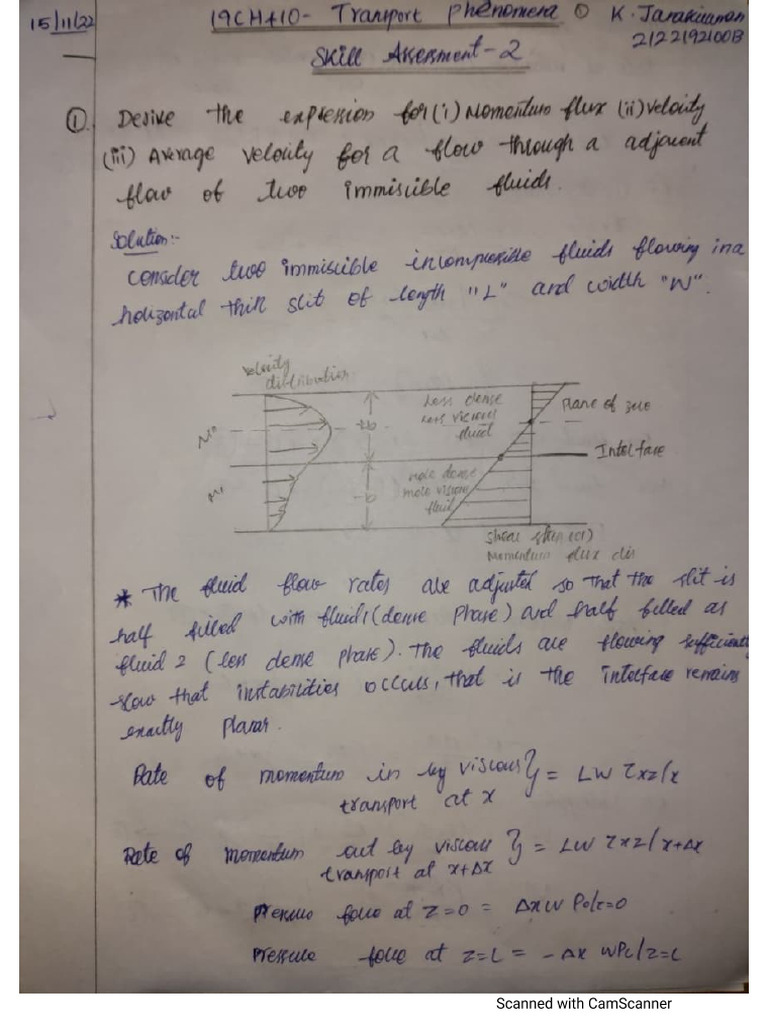 15/11/22
19CH410- Transport Phenomena ① K. Janakiraman
212219210013
Skill Assessment-2
① Derive the expression for (i) Momentum flux (ii) Velocity
(iii) Average velocity for a flow through a adjacent
flow of two immiscible fluids.
Solution:-
consider two immiscible incompressible fluids flowing in a
horizontal thin slit of length "L" and width "W".
velocity
distribution
Less dense
Less viscous
fluid
Plane of zero
Interface
more dense
more viscous
fluid
Shear stress (or)
Momentum flux dis
* The fluid flow rates are adjusted so that the slit is
half filled with fluid 1 (dense phase) and half filled as
fluid 2 (less dense phase). The fluids are flowing sufficiently
slow that instabilities occurs, that is the interface remains
exactly planar.
Rate of momentum in by viscous } = LW τxz/x
transport at x
Rate of momentum out by viscous } = LW τxz/x+Δx
transport at x+Δx
Pressure force at z=0 = ΔxW P0/z=0
Pressure force at z=L = -Δx WPL/z=L
Scanned with CamScanner